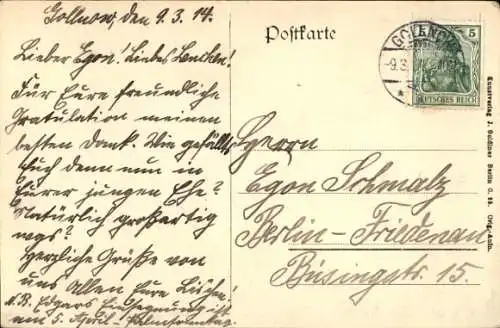 Gollnow, den 9.3.14.
Lieber Egon! Liebes Lenchen!
Für Eure freundliche
Gratulation meinen
besten Dank. Wie gefällts
Euch denn nun in
Eurer jungen Ehe?
Natürlich großartig
Herzliche Grüße von
uns Allen Eure Lischen.
N.B. Edgars Einsegnung ist
am 5. April - Palmsonntag.
Postkarte
GOLLNOW
9.3.
5
DEUTSCHES REICH
Herrn
Egon Schmalz
Berlin-Friedenau
Büsingstr. 15.
Kunstverlag J. Goldiner Berlin C. 25. Orig.-Aufn.